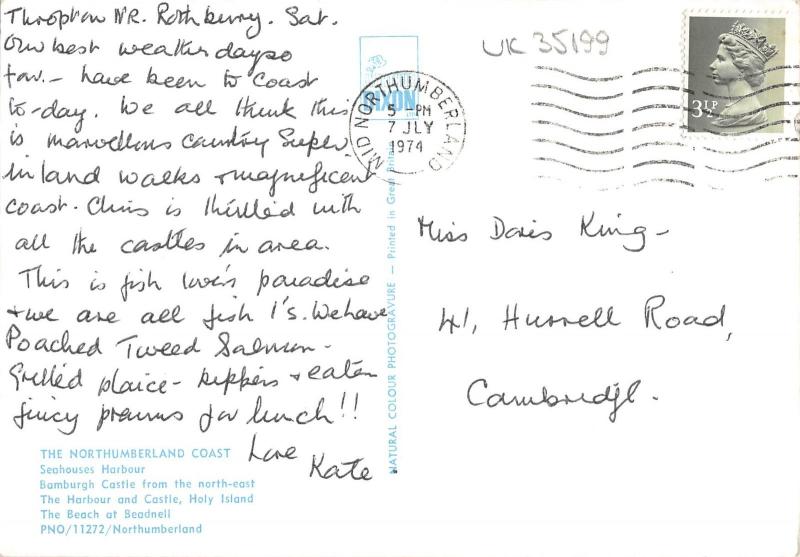 Thropton NR. Rothberry. Sat.
Our best weather day so
far. – have been to Coast
to-day. We all think this
is marvellous country Super
inland walks + magnificent
coast. Chris is thrilled with
all the castles in area.
This is fish lover's paradise
+ we are all fish l's. We have
Poached Tweed Salmon –
Grilled plaice – kippers + eaten
juicy prawns for lunch!!
Love
Kate
THE NORTHUMBERLAND COAST
Seahouses Harbour
Bamburgh Castle from the north-east
The Harbour and Castle, Holy Island
The Beach at Beadnell
PNO/11272/Northumberland
DIXON
NATURAL COLOUR PHOTOGRAVURE — Printed in Great Britain
UK 35199
MID NORTHUMBERLAND
5 - PM
7 JLY
1974
3½P
Miss Doris King –
41, Hurrell Road,
Cambridge.